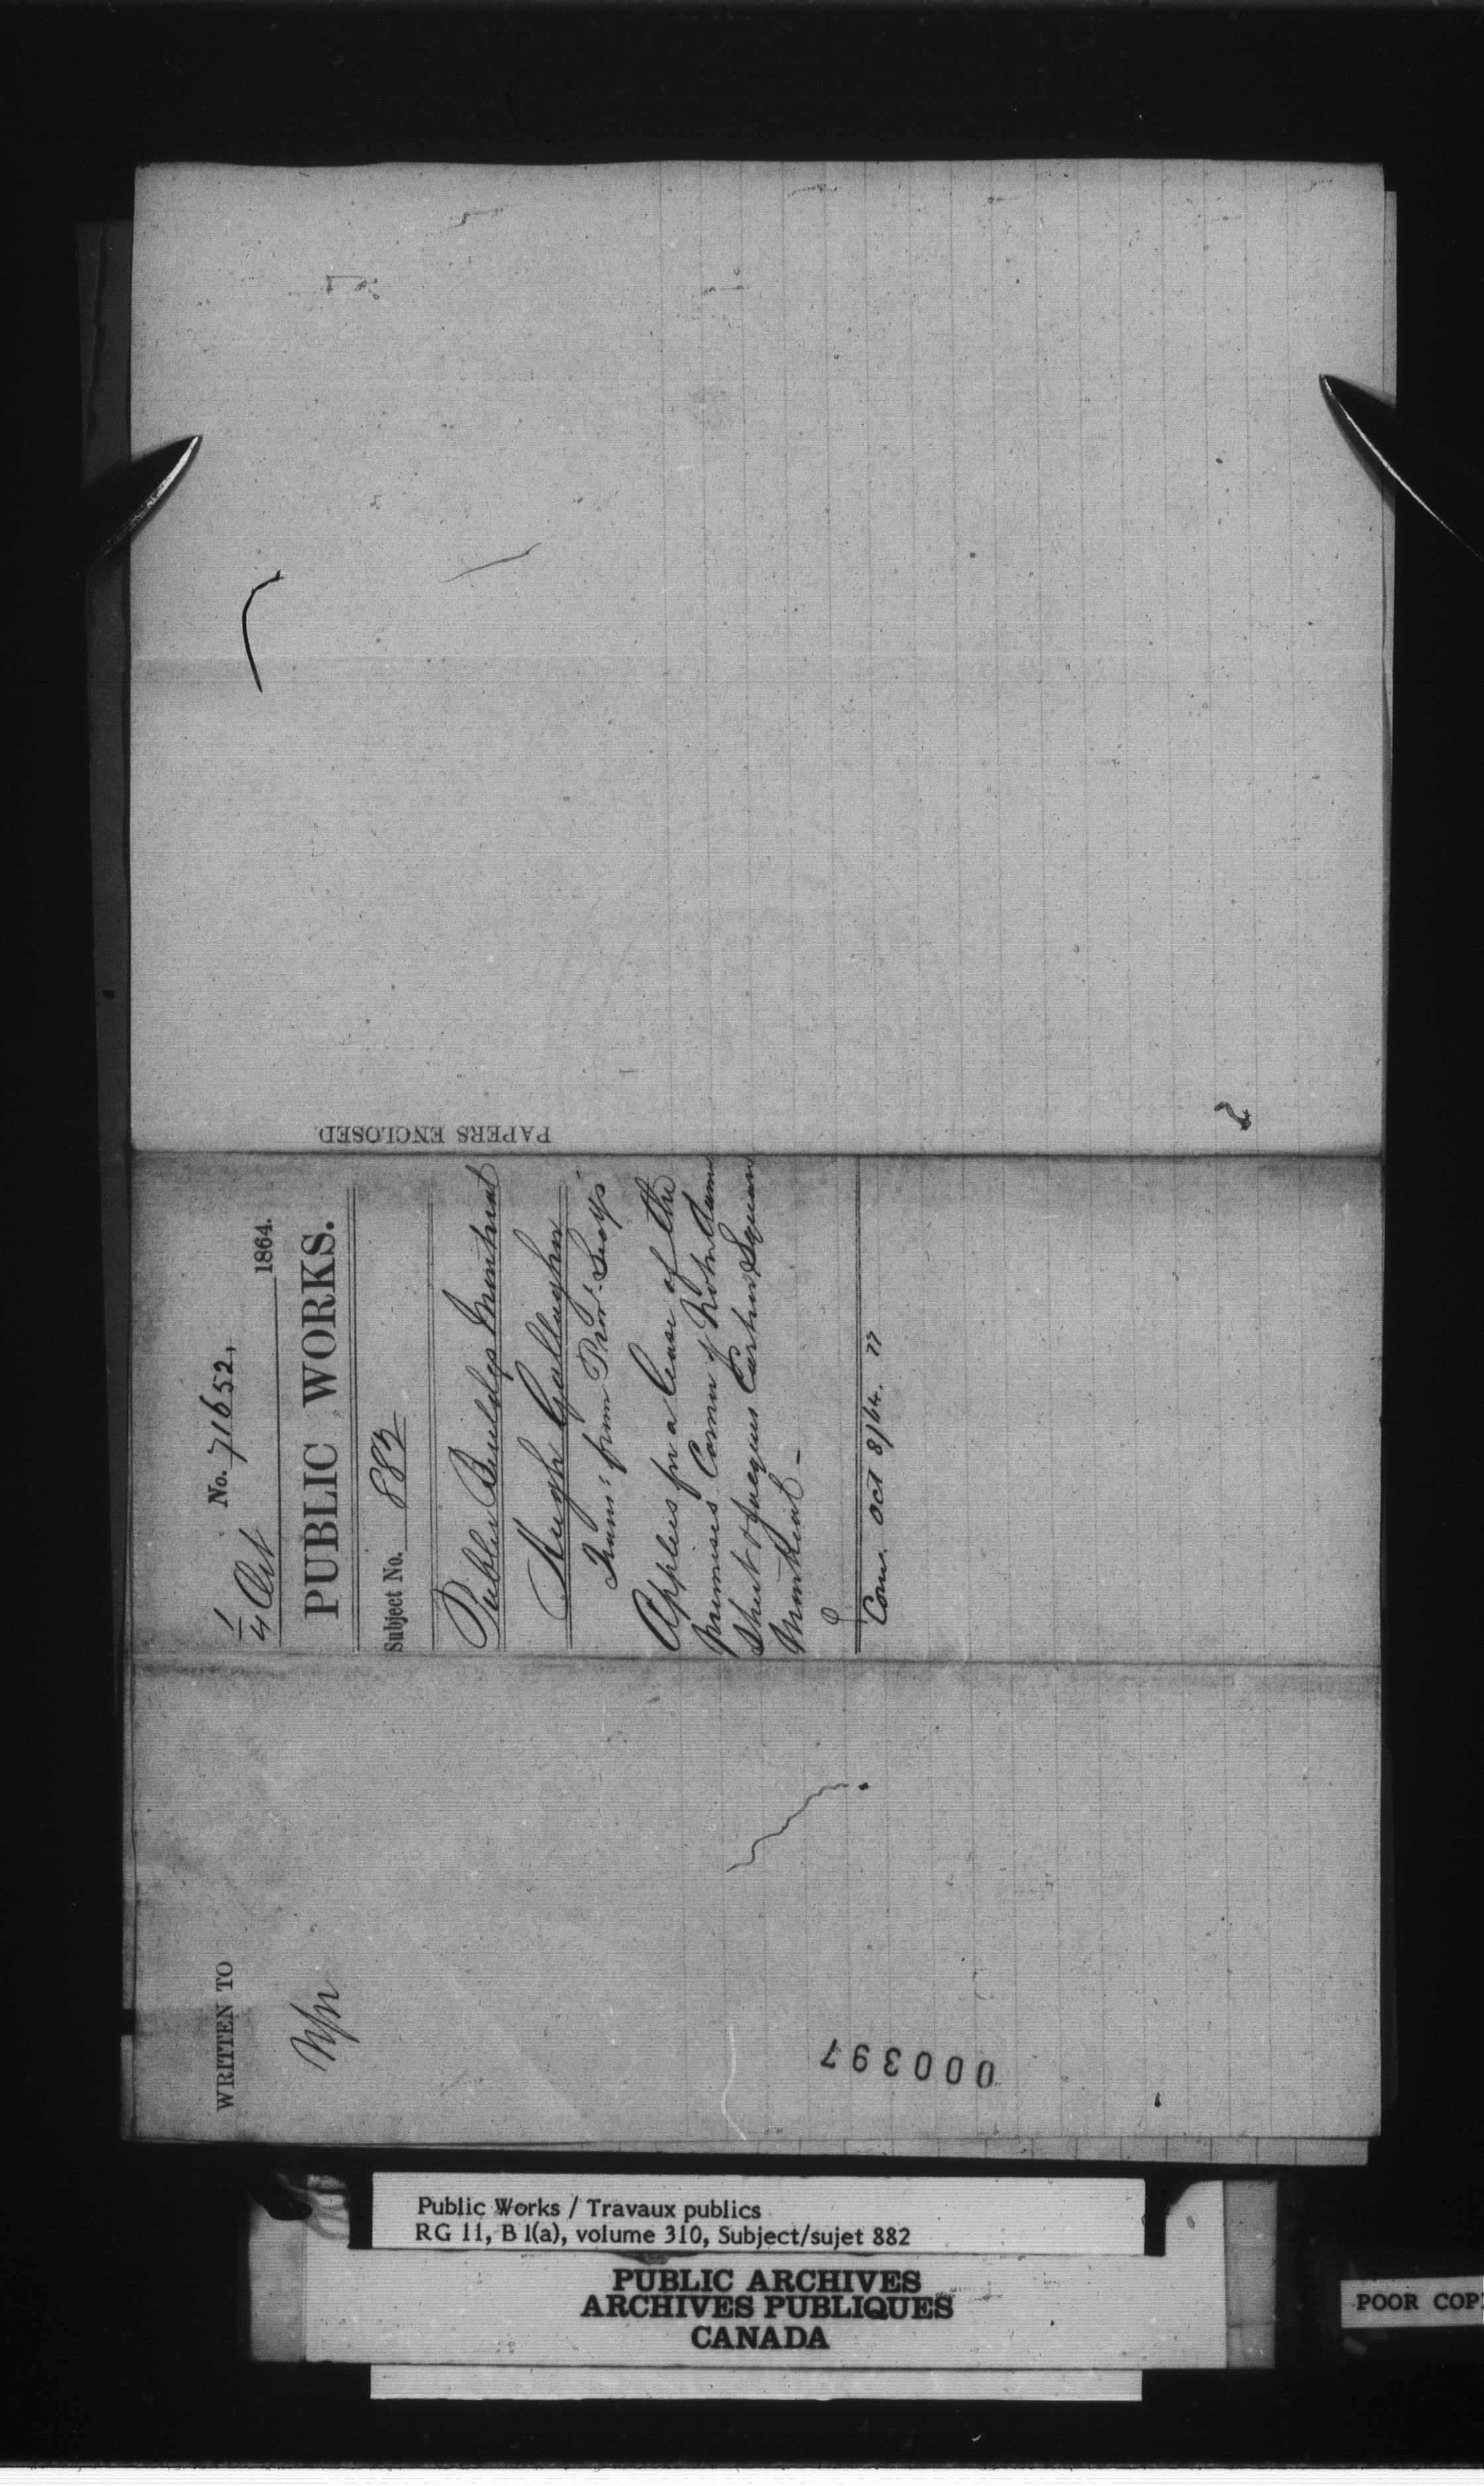 PAPERS ENCLOSED.
No. 71652,
1/4 Oct 1864.
PUBLIC WORKS.
Subject No. 882
Public Buildgs Montreal
Hugh Gallagher
Trans: from Prov: Secy's
Applies for a lease of the
premises Corner of Notre Dame
Street & Jacques Cartier Square
Montreal -
Com. Oct 8/64. 77
WRITTEN TO
000397
Public Works / Travaux publics
RG 11, B 1(a), volume 310, Subject/sujet 882
PUBLIC ARCHIVES
ARCHIVES PUBLIQUES
CANADA
POOR COP